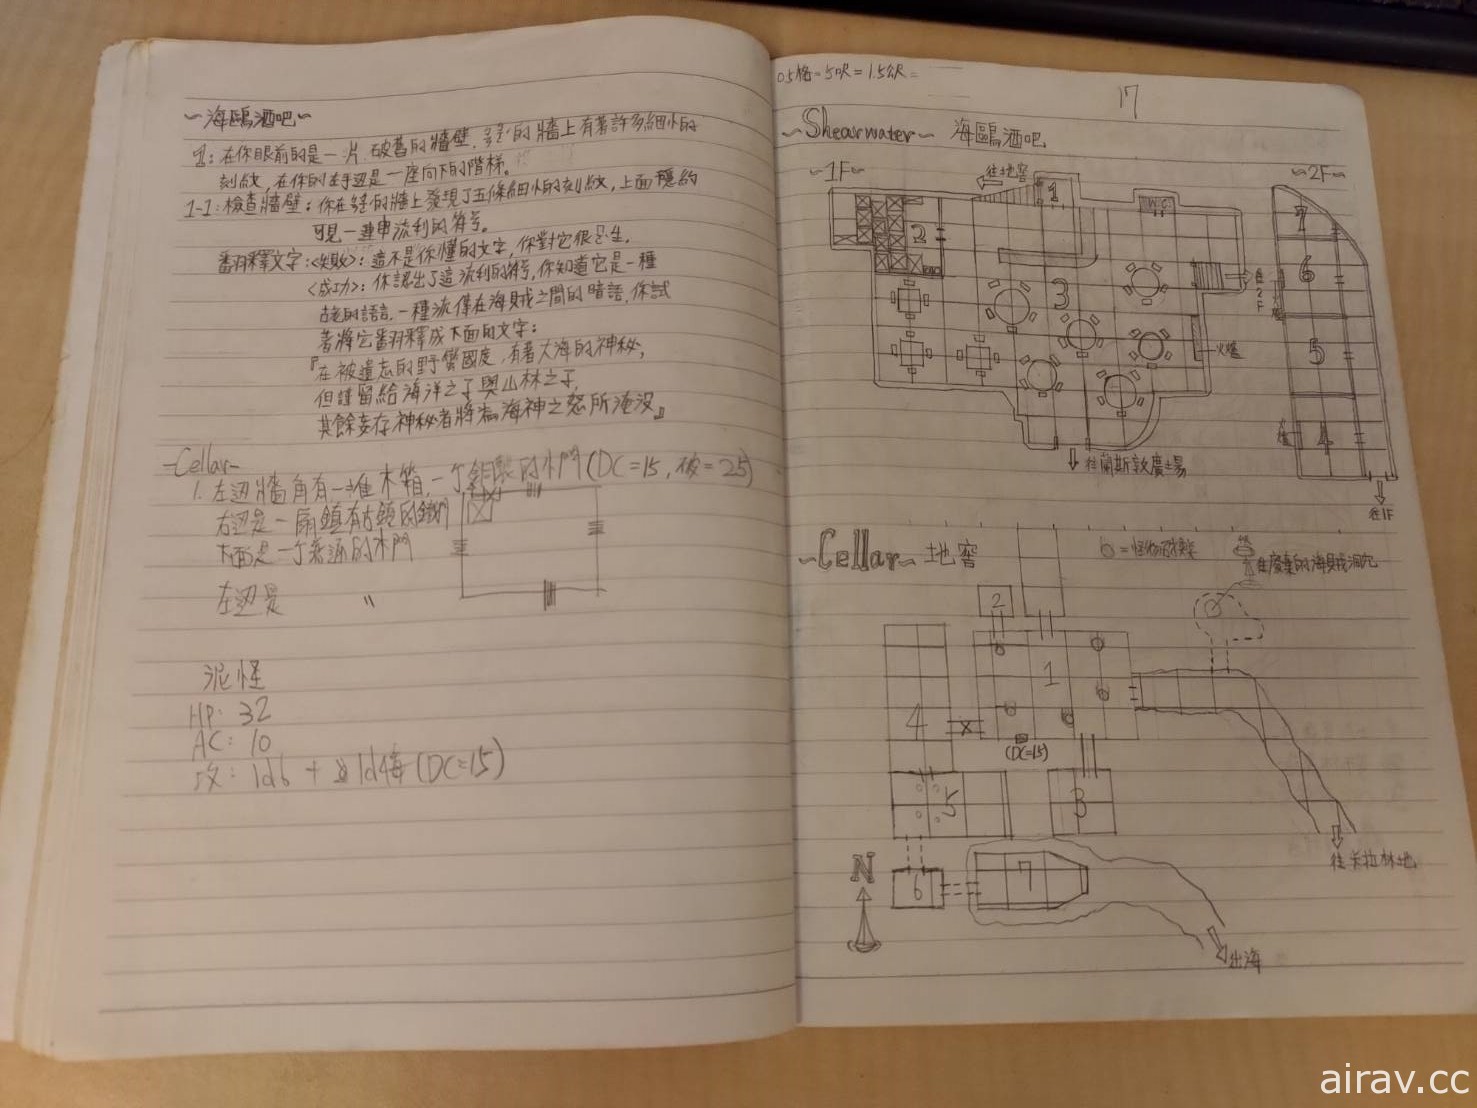 ~海鷗酒吧~
1:在你眼前的是一片破舊的牆壁,的牆上有著許多細小的
刻紋,在你的左手边是一座向下的階梯。
1-1:檢查牆壁:你在的牆上發現了五條細小的刻紋,上面隱約
可見一連串流利的符号。
翻釋文字:<失敗>:這不是你懂的文字,你對它很陌生。
<成功>:你認出了這流利的符号,你知道它是一種
古老的語言,一種流傳在海賊之間的暗語,你試
著將它翻釋成下面的文字:
『在被遺忘的野蠻國度,有著大海的神秘,
但謹留給海洋之子與山林之子,
其餘妄存神秘者將為海神之怒所淹沒』
-Cellar-
1.左边牆角有一堆木箱,一个的木門(DC=15,破=25)
右边是一扇鎖有古鎖的鐵門
下面是一个普通的木門
左边是 〃
泥怪
HP:32
AC:10
攻:1d6+1d4毒(DC=15)
0.5格=5呎=1.5公尺=
17
~Shearwater~ 海鷗酒吧
~1F~
往地窖
1
W.C.
2
3
往2F
火爐
往蘭斯敦廣場
~2F~
7
6
5
4
往1F
~Cellar~ 地窖
=怪物
往廢棄的海賊洞穴
2
1
4
(DC=15)
5
3
往卡拉林地
N
6
7
出海
airav.cc